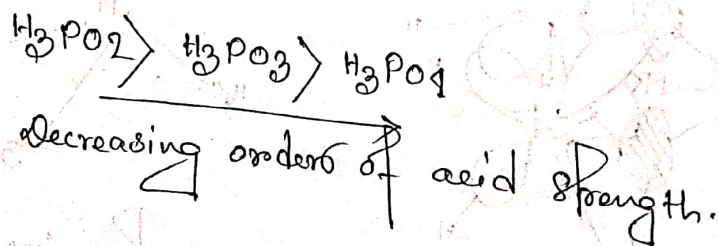 H3PO2 > H3PO3 > H3PO4
Decreasing orders of acid strength.